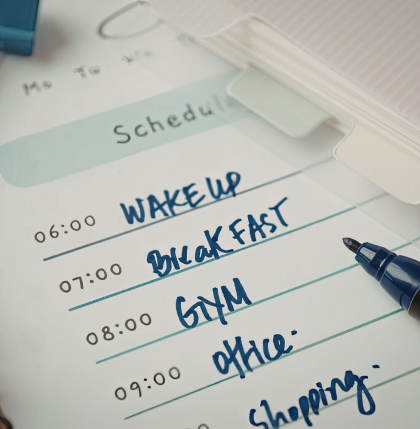 Mo Tu We
Schedule
06:00 WAKE UP
07:00 BreaKFAST
08:00 GYM
09:00 office.
00 shopping.